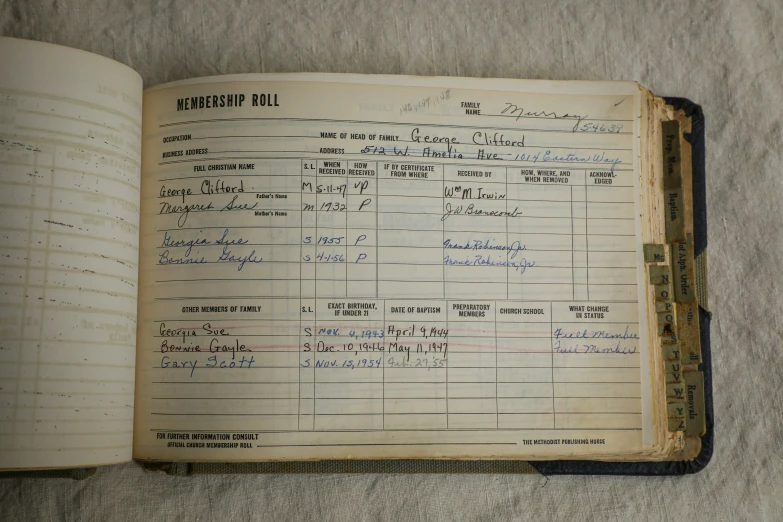 MEMBERSHIP ROLL
FAMILY NAME Murray
OCCUPATION NAME OF HEAD OF FAMILY George Clifford
BUSINESS ADDRESS ADDRESS 512 W. Amelia Ave. 1014 Eastern Way
FULL CHRISTIAN NAME S. L. WHEN RECEIVED HOW RECEIVED IF BY CERTIFICATE FROM WHERE RECEIVED BY HOW, WHERE, AND WHEN REMOVED ACKNOWLEDGED
George Clifford M 5-11-47 VP Wm M. Irwin
Father's Name
Margaret Sue m 1932 P J.W.
Mother's Name
Georgia Sue S 1955 P Frank Robinson, Jr.
Bonnie Gayle S 4-1-56 P Frank Robinson, Jr.
OTHER MEMBERS OF FAMILY S. L. EXACT BIRTHDAY, IF UNDER 21 DATE OF BAPTISM PREPARATORY MEMBERS CHURCH SCHOOL WHAT CHANGE IN STATUS
Georgia Sue S Nov. 6, 1943 April 9, 1944 Full Member
Bonnie Gayle S Dec. 10, 1946 May 11, 1947 Full Member
Gary Scott S Nov. 15, 1954 Feb. 27, '55
FOR FURTHER INFORMATION CONSULT
OFFICIAL CHURCH MEMBERSHIP ROLL THE METHODIST PUBLISHING HOUSE
Prep. Mem.
Baptism
Alph. Order
Mc
N
O
P
Removals
U V
W
Y